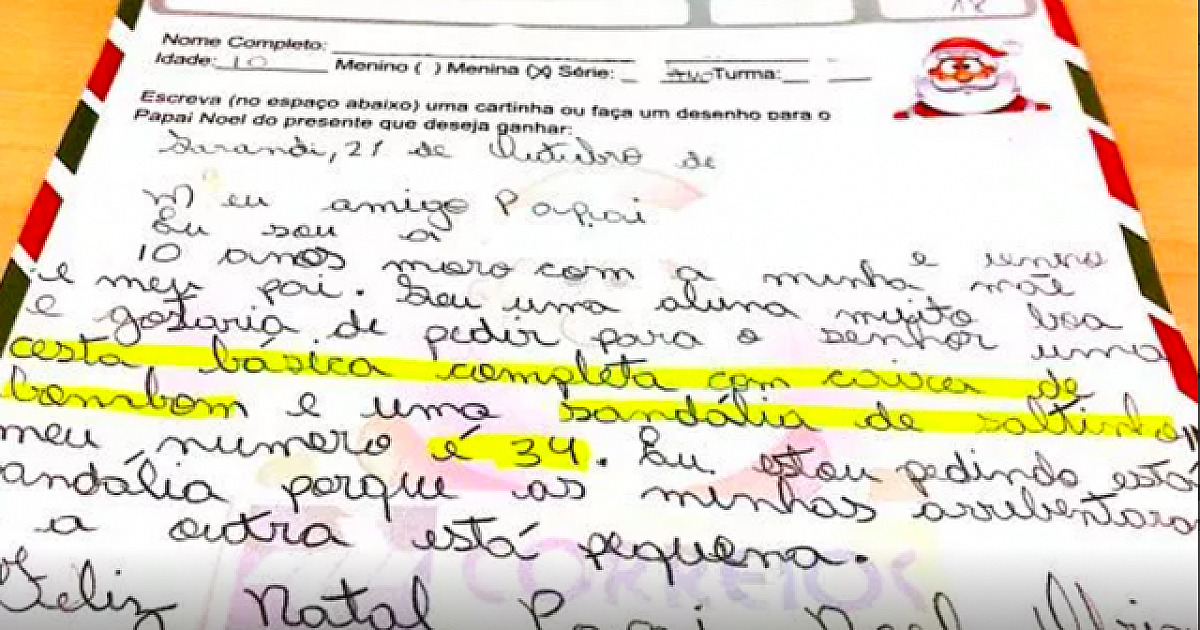 Nome Completo:
Idade: 10 Menino ( ) Menina (X) Série: Turma:
Escreva (no espaço abaixo) uma cartinha ou faça um desenho para o
Papai Noel do presente que deseja ganhar:
Sarandi, 21 de Outubro de
Meu amigo Papai
Eu sou a
10 anos moro com a minha mãe e
e meu pai. Sou uma aluna muito boa
e gostaria de pedir para o senhor uma
cesta básica completa com caixa de
bombom e uma sandália de saltinho,
meu numero é 34. Eu estou pedindo está
andália porque as minhas arrebentara
a outra está pequena.
Feliz Natal Papai Noel
CORREIOS